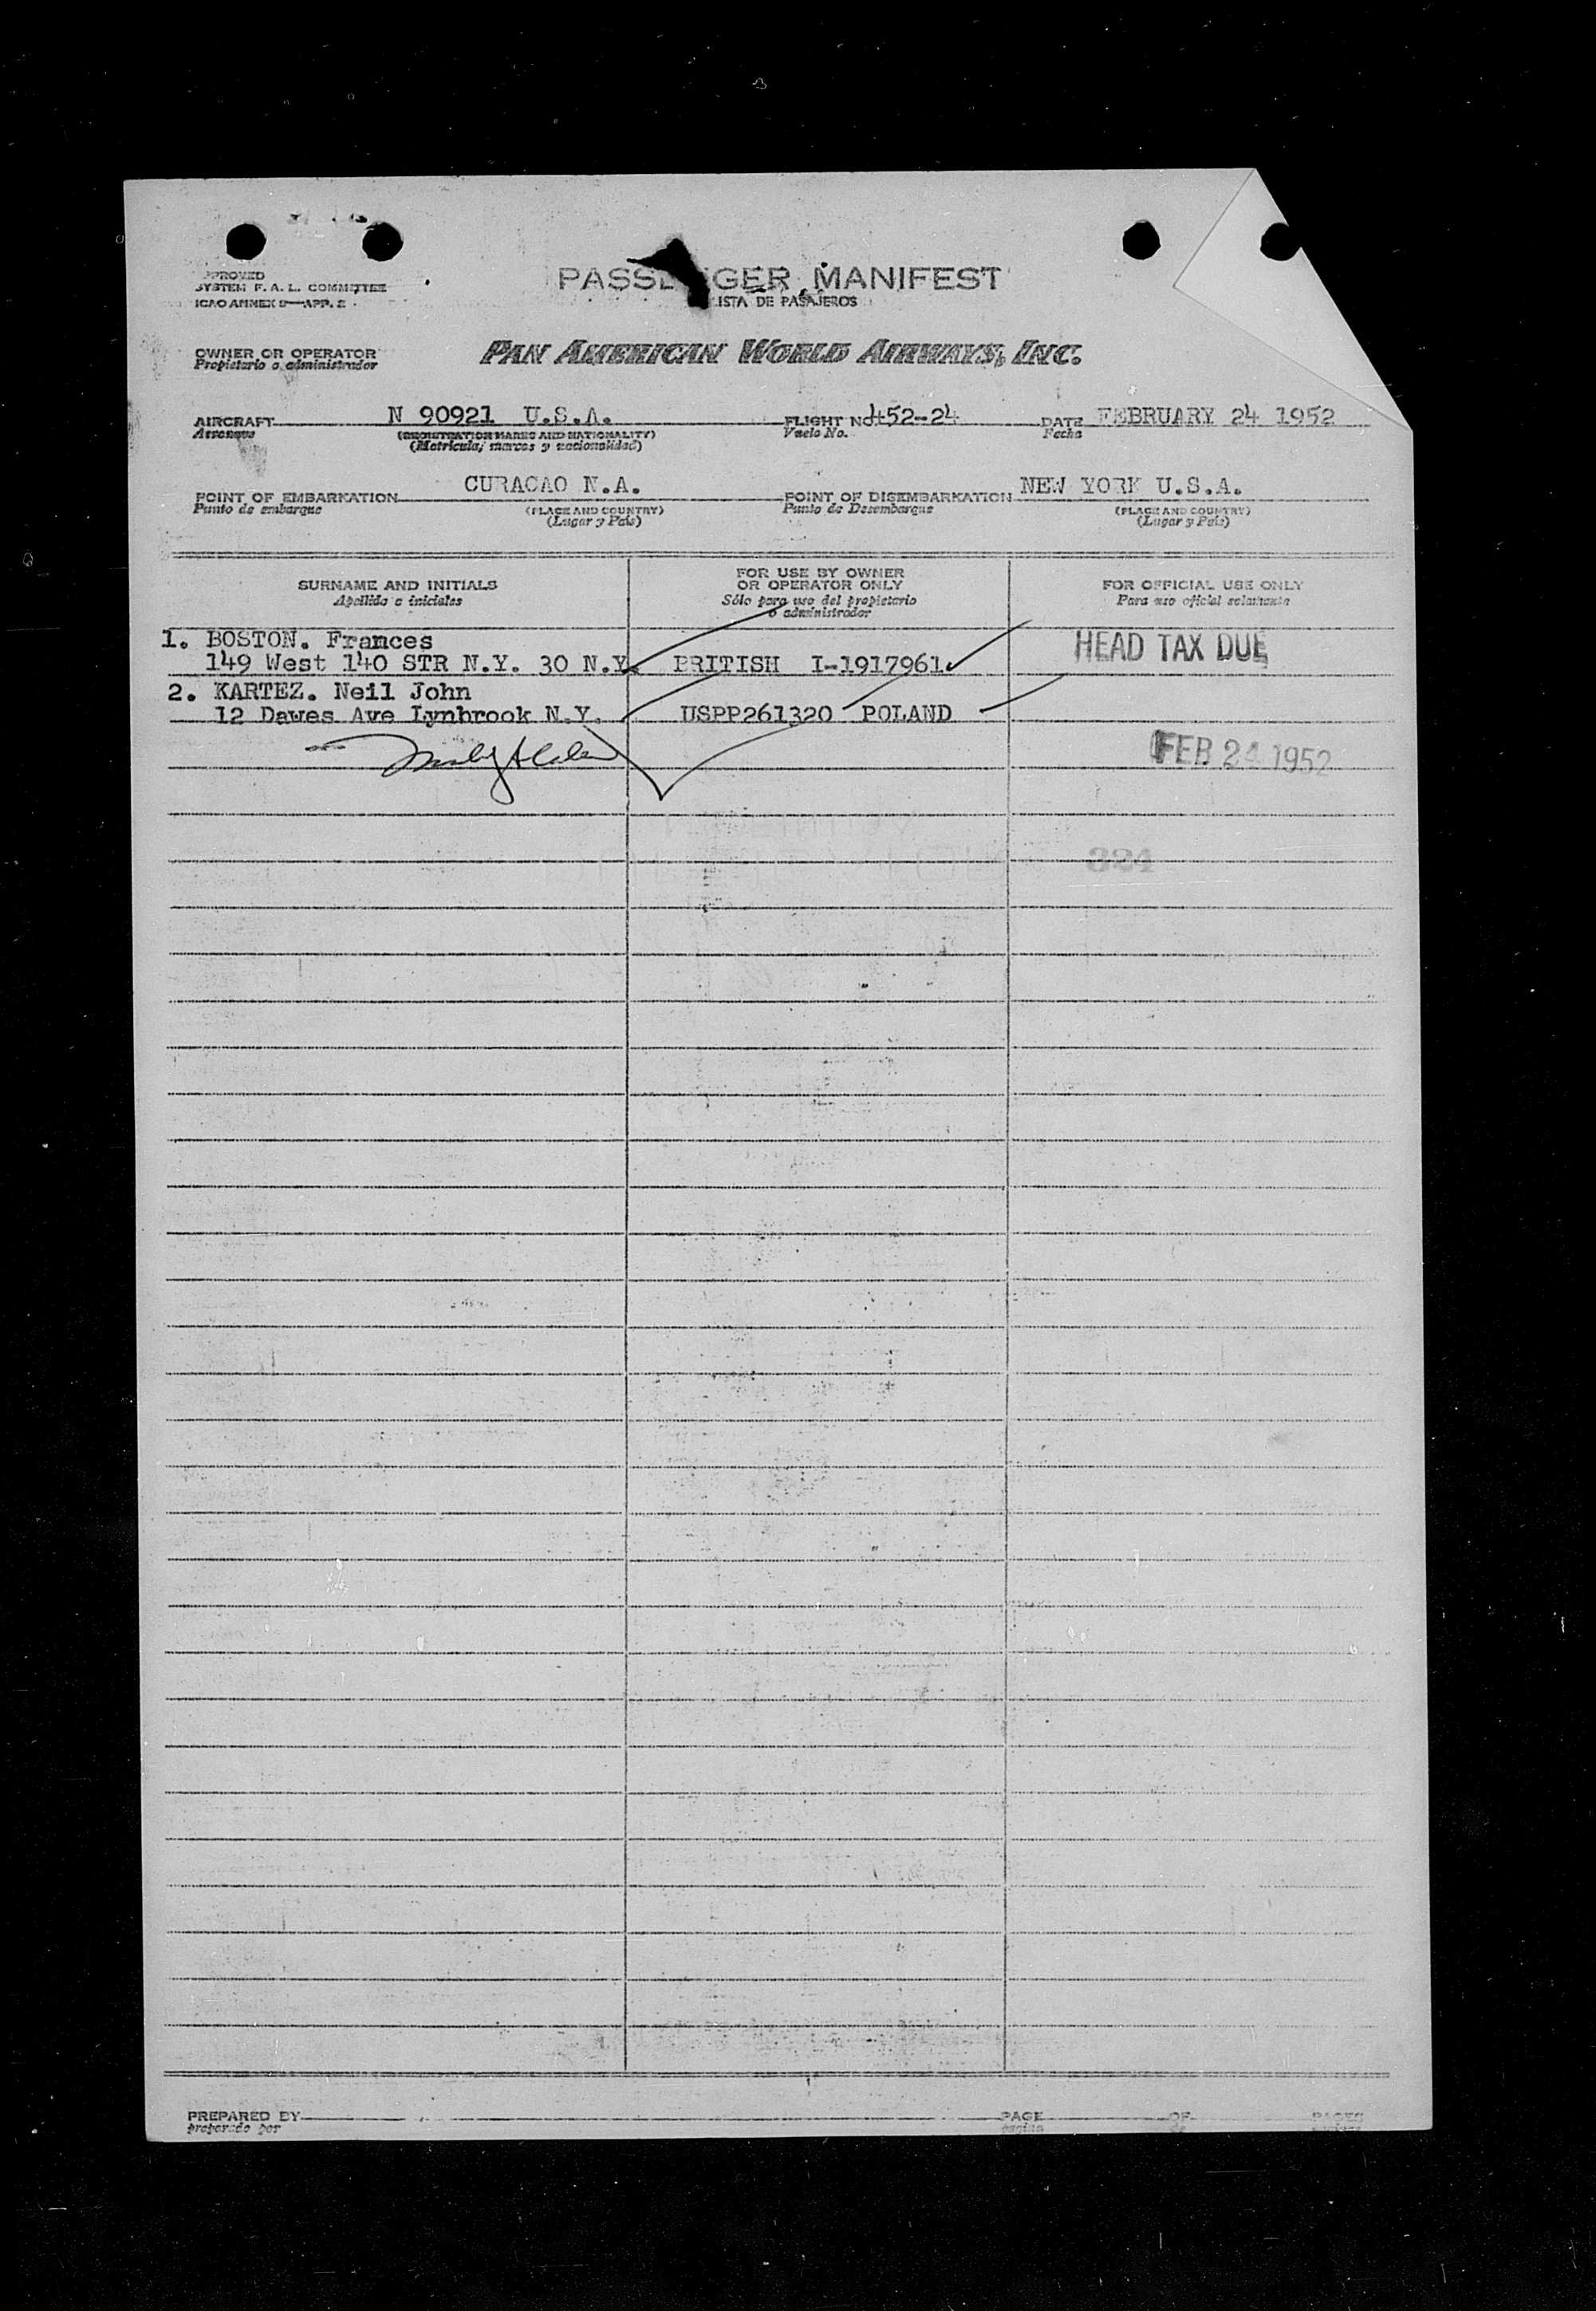 APPROVED
SYSTEM F. A. L. COMMITTEE
ICAO ANNEX 9—APP. 2
PASSENGER MANIFEST
LISTA DE PASAJEROS
OWNER OR OPERATOR
Propietario o administrador
PAN AMERICAN WORLD AIRWAYS, INC.
AIRCRAFT N 90921 U.S.A. FLIGHT NO. 452-24 DATE FEBRUARY 24 1952
Aeronave (REGISTRATION MARKS AND NATIONALITY) Vuelo No. Fecha
(Matricula, marcas y nacionalidad)
POINT OF EMBARKATION CURACAO N.A. POINT OF DISEMBARKATION NEW YORK U.S.A.
Punto de embarque (PLACE AND COUNTRY) Punto de Desembarque (PLACE AND COUNTRY)
(Lugar y País) (Lugar y País)
SURNAME AND INITIALS
Apellido e iniciales
FOR USE BY OWNER
OR OPERATOR ONLY
Sólo para uso del propietario
o administrador
FOR OFFICIAL USE ONLY
Para uso oficial solamente
1. BOSTON. Frances
149 West 140 STR N.Y. 30 N.Y. BRITISH I-1917961 HEAD TAX DUE
2. KARTEZ. Neil John
12 Dawes Ave Lynbrook N.Y. USPP261320 POLAND
FEB 24 1952
324
PREPARED BY PAGE OF PAGES
preparado por página de